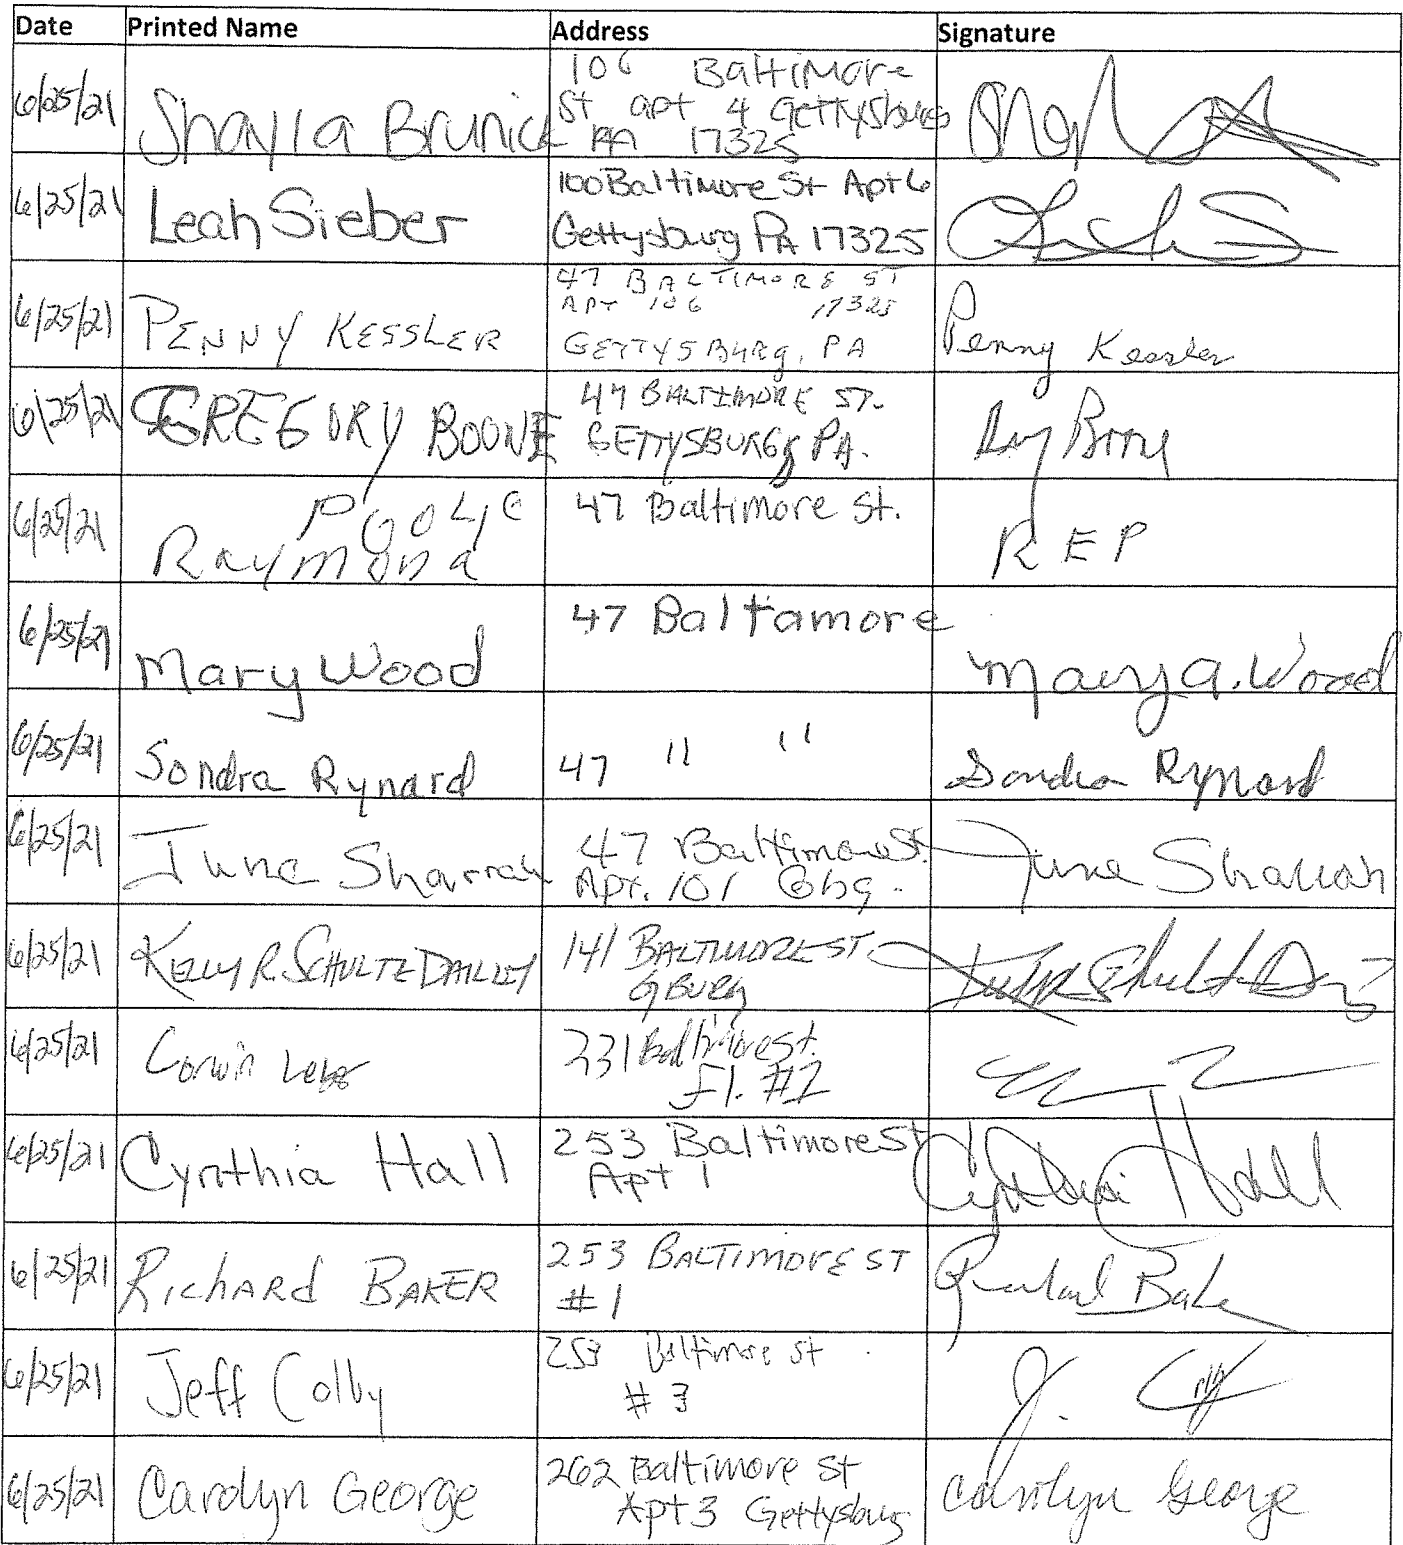 Date Printed Name Address Signature
6/25/21 Shayla Brunick 106 Baltimore
St apt 4 Gettysburg
PA 17325
6/25/21 Leah Sieber 100 Baltimore St Apt 6
Gettysburg PA 17325
6/25/21 PENNY KESSLER 47 BALTIMORE ST
APT 106 17325
GETTYSBURg, PA Penny Kessler
6/25/21 GREGORY BOONE 47 BALTIMORE ST.
GETTYSBURG, PA.
6/25/21 Raymond 47 Baltimore St. REP
6/25/21 Mary Wood 47 Baltamore Mary A. Wood
6/25/21 Sondra Rynard 47 " " Sondra Rynard
6/25/21 June Sharrah 47 Baltimore St.
Apt. 101 Gbg. June Sharrah
6/25/21 KELLY R. SCHULTZ DAILEY 141 BALTIMORE ST
GBURG
6/25/21 Corwin 231 Baltimore St.
Fl. #2
6/25/21 Cynthia Hall 253 Baltimore St
Apt 1 Cynthia Hall
6/25/21 Richard BAKER 253 BALTIMORE ST
#1 Richard Baker
6/25/21 Jeff Colby 253 Baltimore St
# 3 J.
6/25/21 Carolyn George 262 Baltimore St
Apt 3 Gettysburg Carolyn George